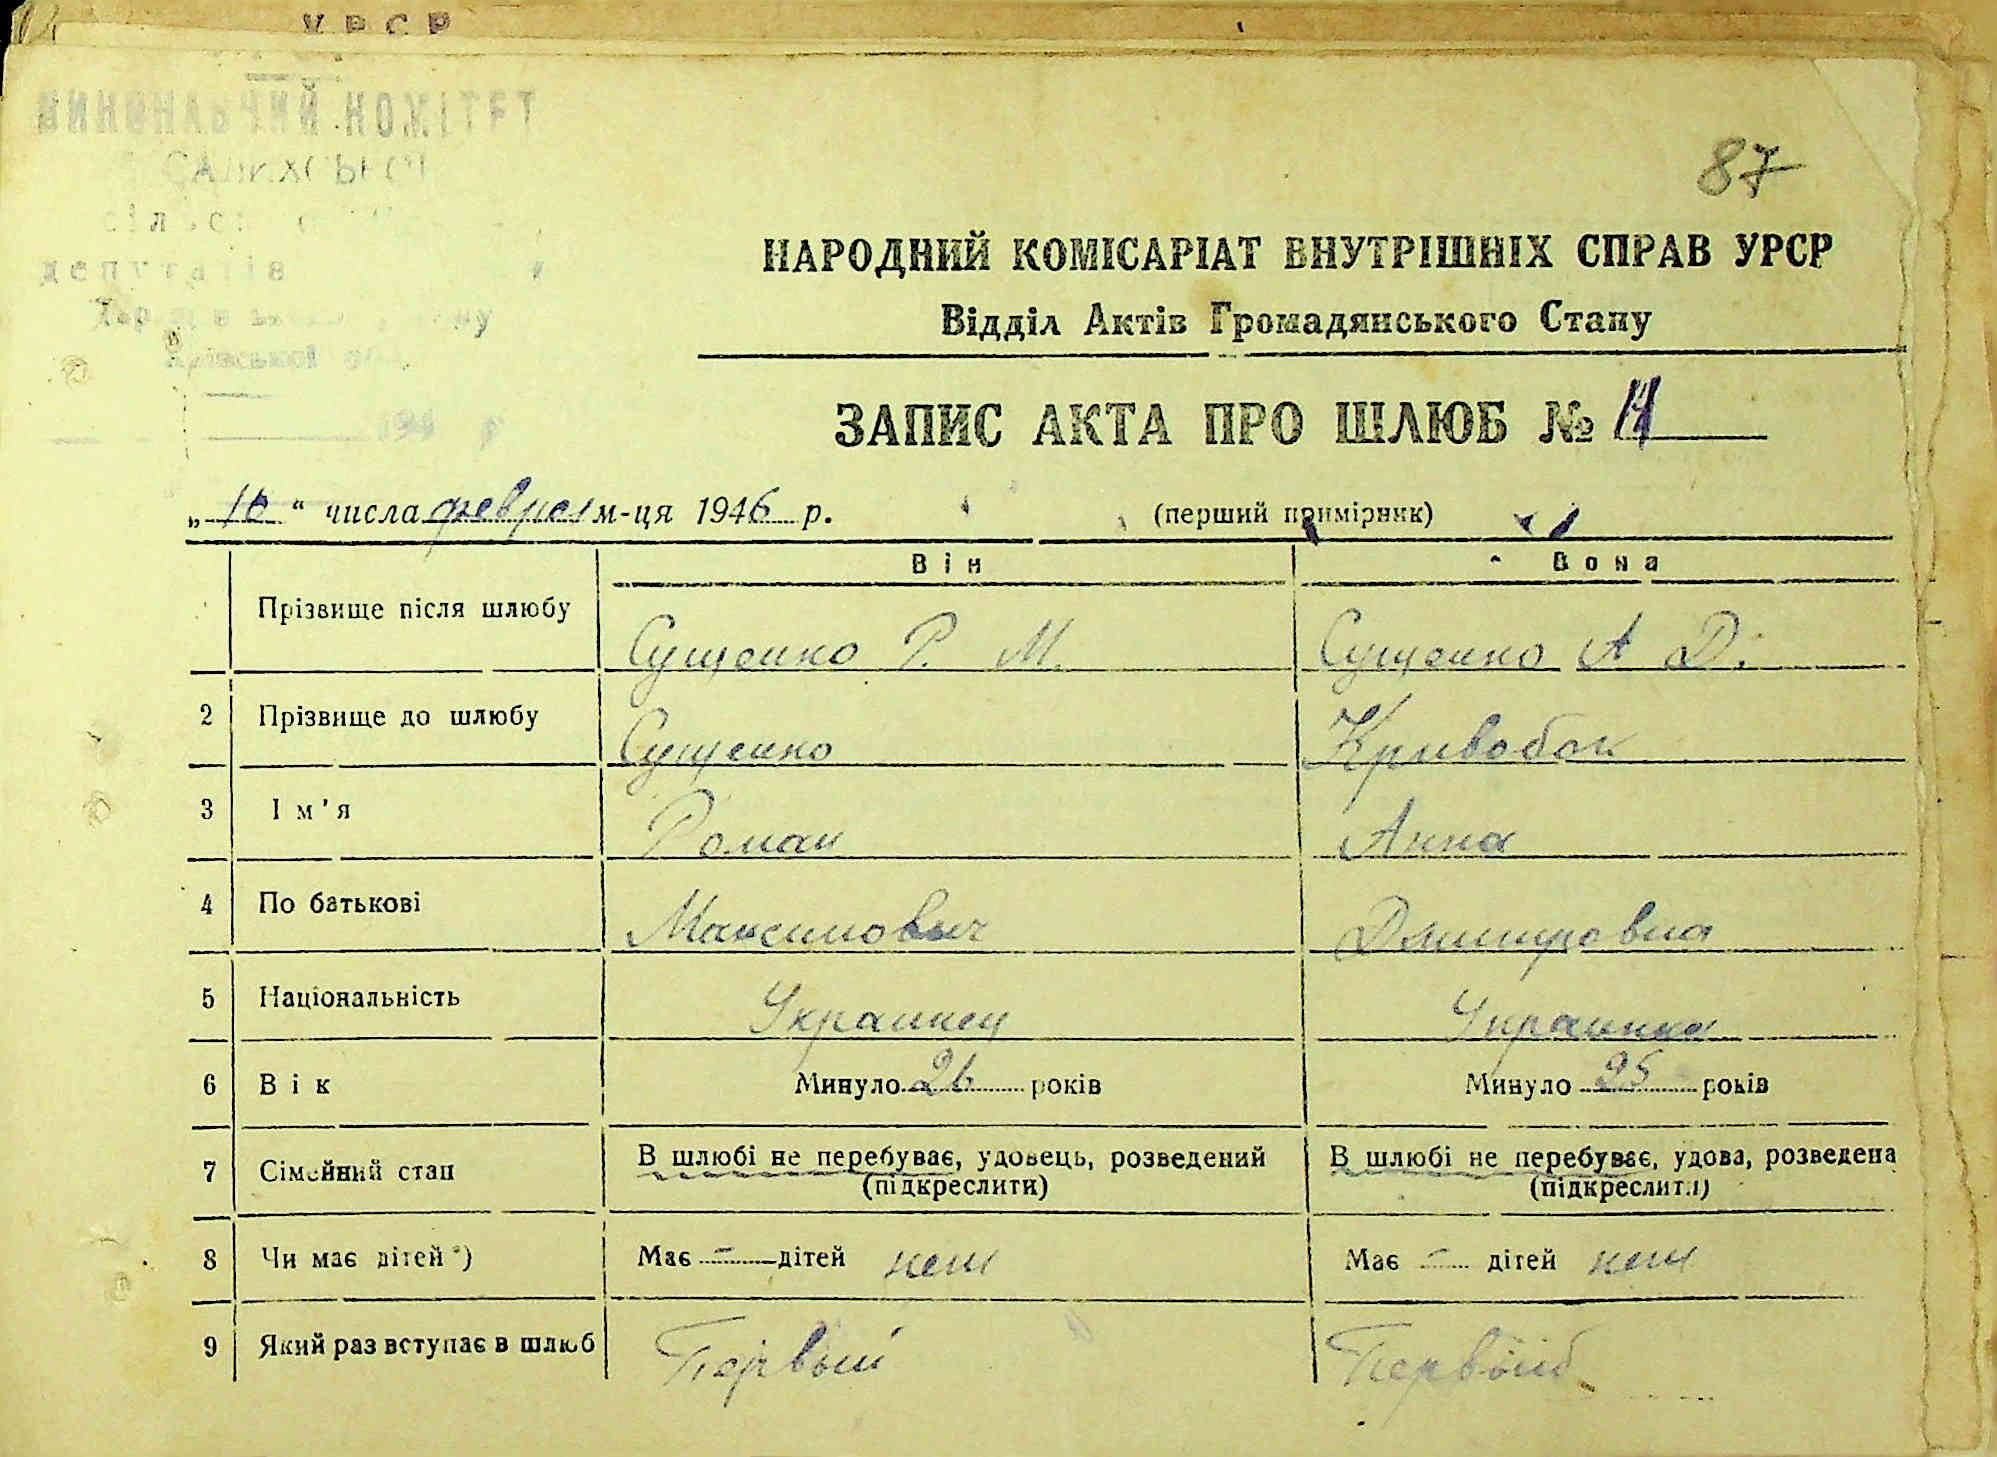 УРСР
ВИКОНАВЧИЙ КОМІТЕТ
депутатів
Київської обл.
194 р
87
НАРОДНИЙ КОМІСАРІАТ ВНУТРІШНІХ СПРАВ УРСР
Відділ Актів Громадянського Стану
ЗАПИС АКТА ПРО ШЛЮБ № 14
„ 10 “ числа феврал м-ця 1946 р. (перший примірник)
Він Вона
Прізвище після шлюбу Сущенко Р. М. Сущенко А Д.
2 Прізвище до шлюбу Сущенко Кривобок
3 Ім'я Роман Анна
4 По батькові Максимович Дмитровна
5 Національність Украинец Украинка
6 Вік Минуло 26 років Минуло 25 років
7 Сімейний стан В шлюбі не перебуває, удовець, розведений (підкреслити) В шлюбі не перебуває, удова, розведена (підкреслити)
8 Чи має дітей *) Має - дітей нет Має - дітей нет
9 Який раз вступає в шлюб Первый Первый